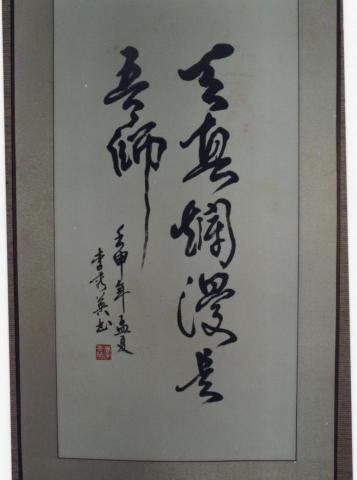 天真爛漫是
吾師
壬申年孟夏
李秀英书